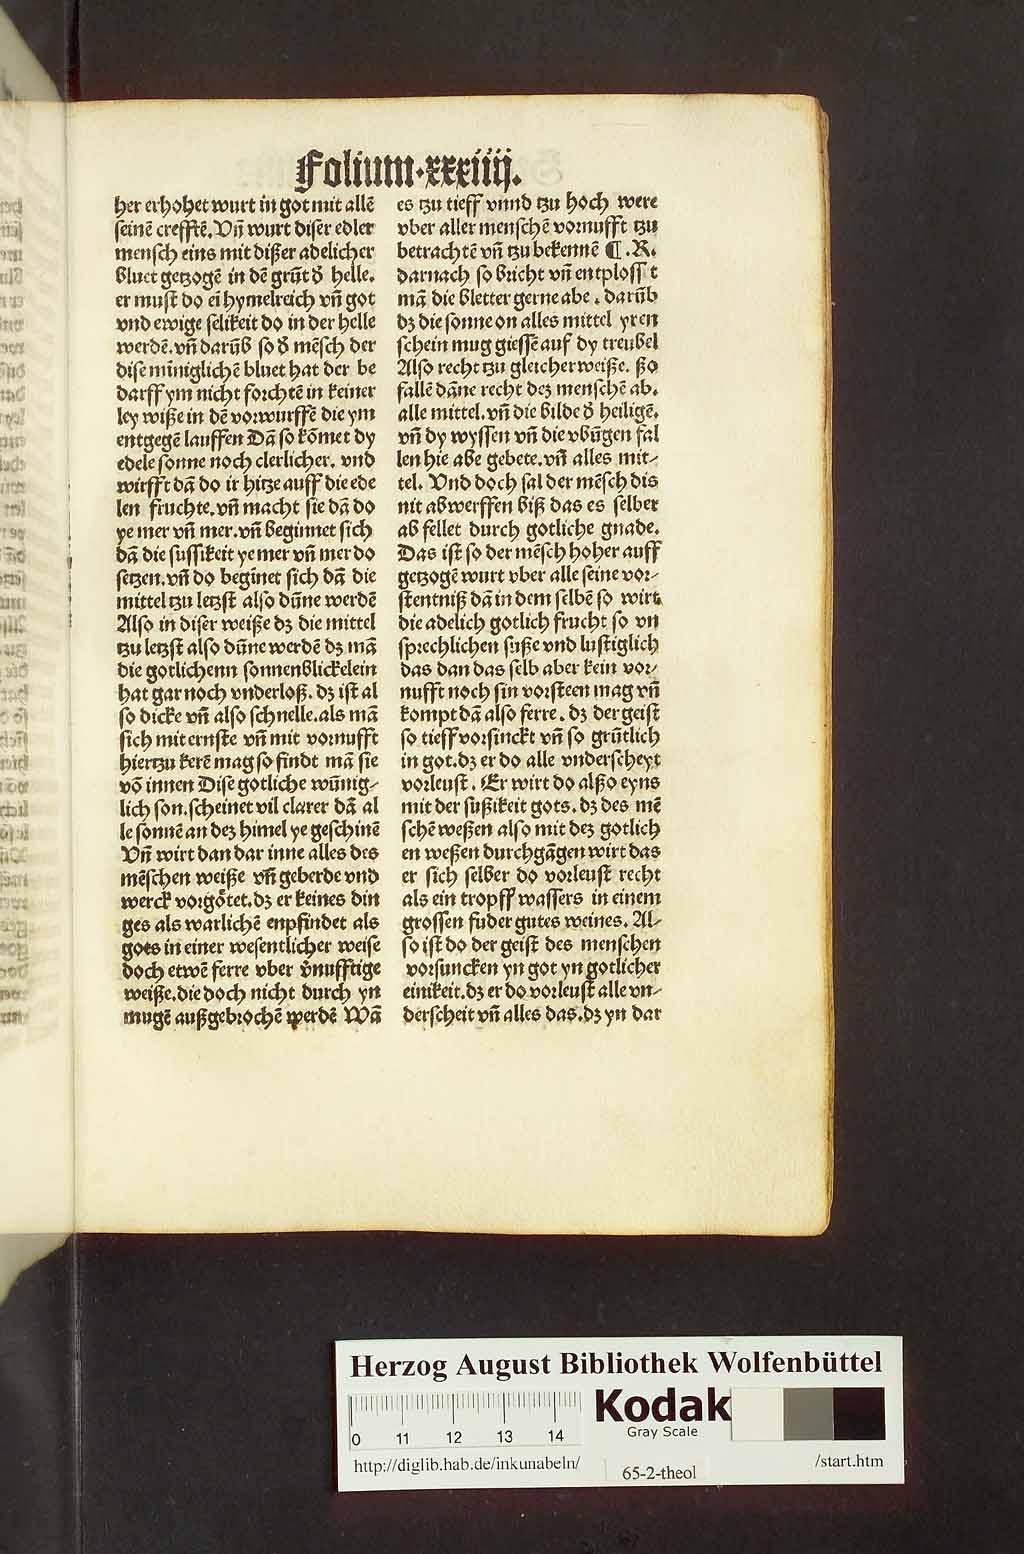 Folium.xxxiiij.
her erhohet wurt in got mit allē
seinē crefftē. Vn̄ wurt diser edler
mensch eins mit dißer adelicher
bluet getzogē in dē grūt ď helle.
er must do eī hymelreich vn̄ got
vnd ewige selikeit do in der helle
werdē. vn̄ darūb so ď mēsch der
dise mīniglichē bluet hat der be
darff ym nicht forchtē in keiner
ley wiße in dē vorwurffē die ym
entgegē lauffen Dā so kōmet dy
edele sonne noch clerlicher. vnd
wirfft dā do ir hitze auff die ede
len fruchte. vn̄ macht sie dā do
ye mer vn̄ mer. vn̄ beginnet sich
dā die sussikeit ye mer vn̄ mer do
setzen. vn̄ do begīnet sich dā die
mittel tzu letzst also dūne werdē
Also in diser weiße dz die mittel
tzu letzst also dūne werdē dz mā
die gotlichenn sonnenblickelein
hat gar noch vnderloß. dz ist al
so dicke vn̄ also schnelle. als mā
sich mit ernste vn̄ mit vornufft
hiertzu kerē mag so findt mā sie
vō innen Dise gotliche wūnig-
lich son. scheinet vil clarer dā al
le sonnē an dez himel ye geschinē
Vn̄ wirt dan dar inne alles des
mēschen weiße vn̄ geberde vnd
werck vorgötet. dz er keines din
ges als warlichē enpfindet als
gotes in einer wesentlicher weise
doch etwē ferre vber v̓nufftige
weiße. die doch nicht durch yn
mugē außgebrochē werdē Wā
es tzu tieff vnnd tzu hoch were
vber aller menschē vornufft tzu
betrachtē vn̄ tzu bekennē ¶ .R.
darnach so bricht vn̄ entplosst
mā die bletter gerne abe. darūb
dz die sonne on alles mittel yren
schein mug giessē auf dy treubel
Also recht tzu gleicher weiße. ßo
fallē dāne recht dez menschē ab.
alle mittel. vn̄ die bilde ď heiligē.
vn̄ dy wyssen vn̄ die vbūgen fal
len hie abe gebete. vn̄ alles mit-
tel. Vnd doch sal der mēsch dis
nit abwerffen biß das es selber
ab fellet durch gotliche gnade.
Das ist so der mēsch hoher auff
getzogē wurt vber alle seine vor-
stentniß dā in dem selbē so wirt
die adelich gotlich frucht so vn
sprechlichen suße vnd lustiglich
das dan das selb aber kein vor-
nufft noch sin vorsteen mag vn̄
kompt dā also ferre. dz der geist
so tieff vorsinckt vn̄ so grūtlich
in got. dz er do alle vnderscheyt
vorleust. Er wirt do alßo eyns
mit der sußikeit gots. dz des mē
schē weßen also mit dez gotlich
en weßen durchgāgen wirt das
er sich selber do vorleust recht
als ein tropff wassers in einem
grossen fuder gutes weines. Al-
so ist do der geist des menschen
vorsuncken yn got yn gotlicher
einikeit. dz er do vorleust alle vn-
derscheit vn̄ alles das. dz yn dar
Herzog August Bibliothek Wolfenbüttel
0 11 12 13 14
Kodak
Gray Scale
http://diglib.hab.de/inkunabeln/
65-2-theol
/start.htm